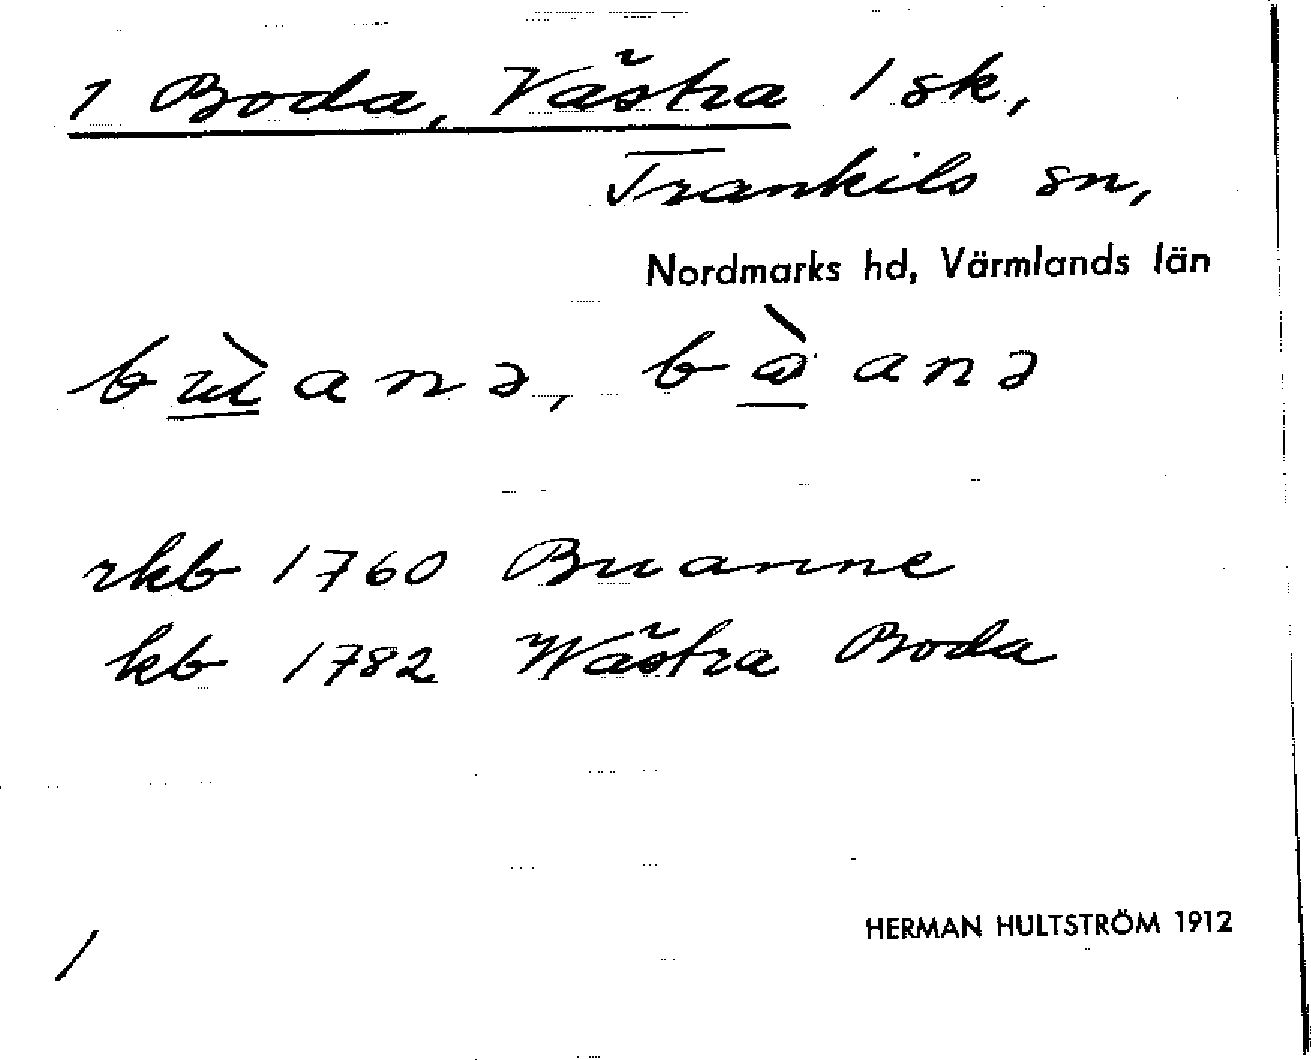 1 Boda, Västra 1 sk,
Trankils sn,
Nordmarks hd, Värmlands län
rkb 1760 Buanne
kb 1782 Wästra Boda
HERMAN HULTSTRÖM 1912
/